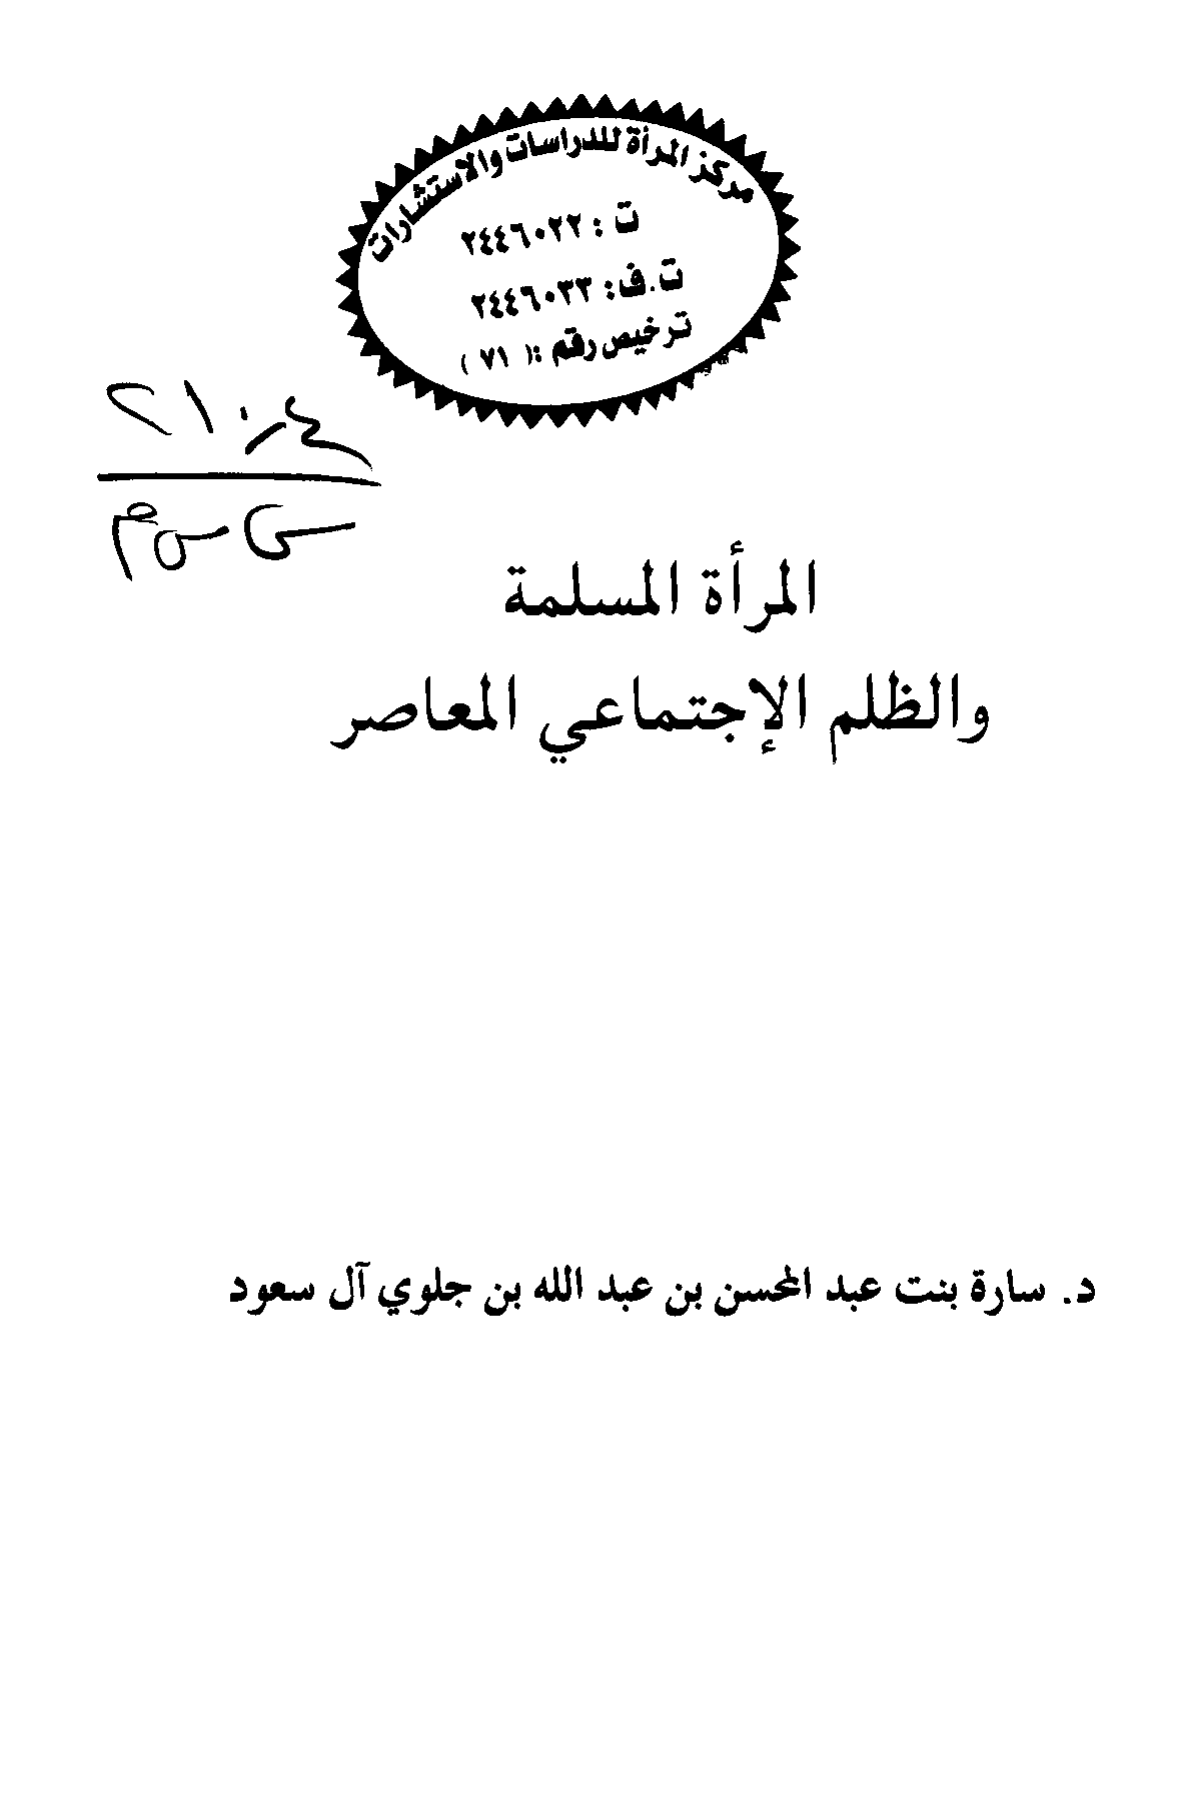 مركز المرأة للدراسات والاستشارات
ت : ٢٤٤٦٠٢٢
ت.ف: ٢٤٤٦٠٣٣
ترخيص رقم :( ٧١ )
٢١٠,٤
المرأة المسلمة
والظلم الإجتماعي المعاصر
د. سارة بنت عبد المحسن بن عبد الله بن جلوي آل سعود